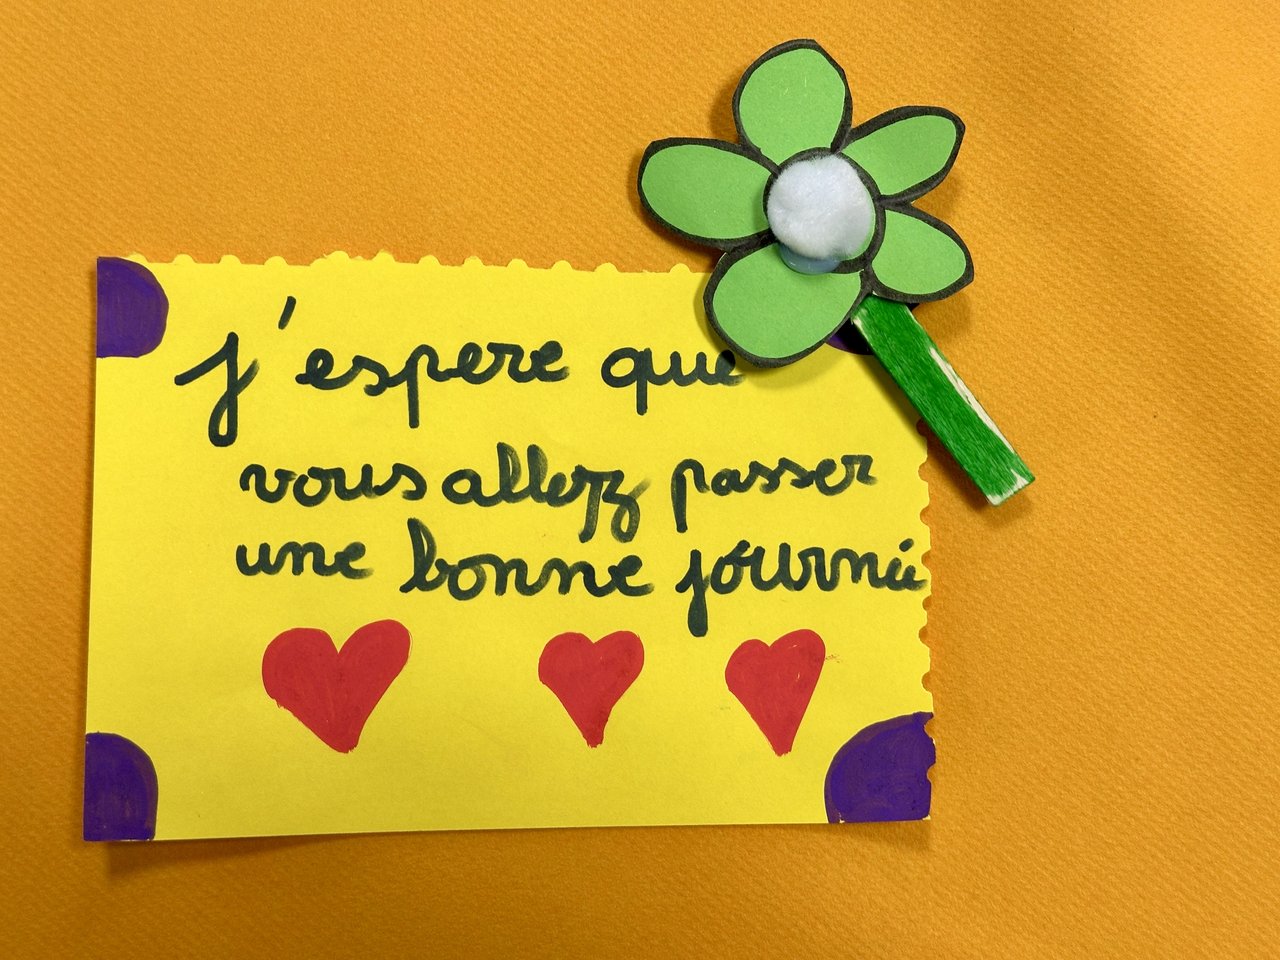 j'espere que
vous allez passer
une bonne journée